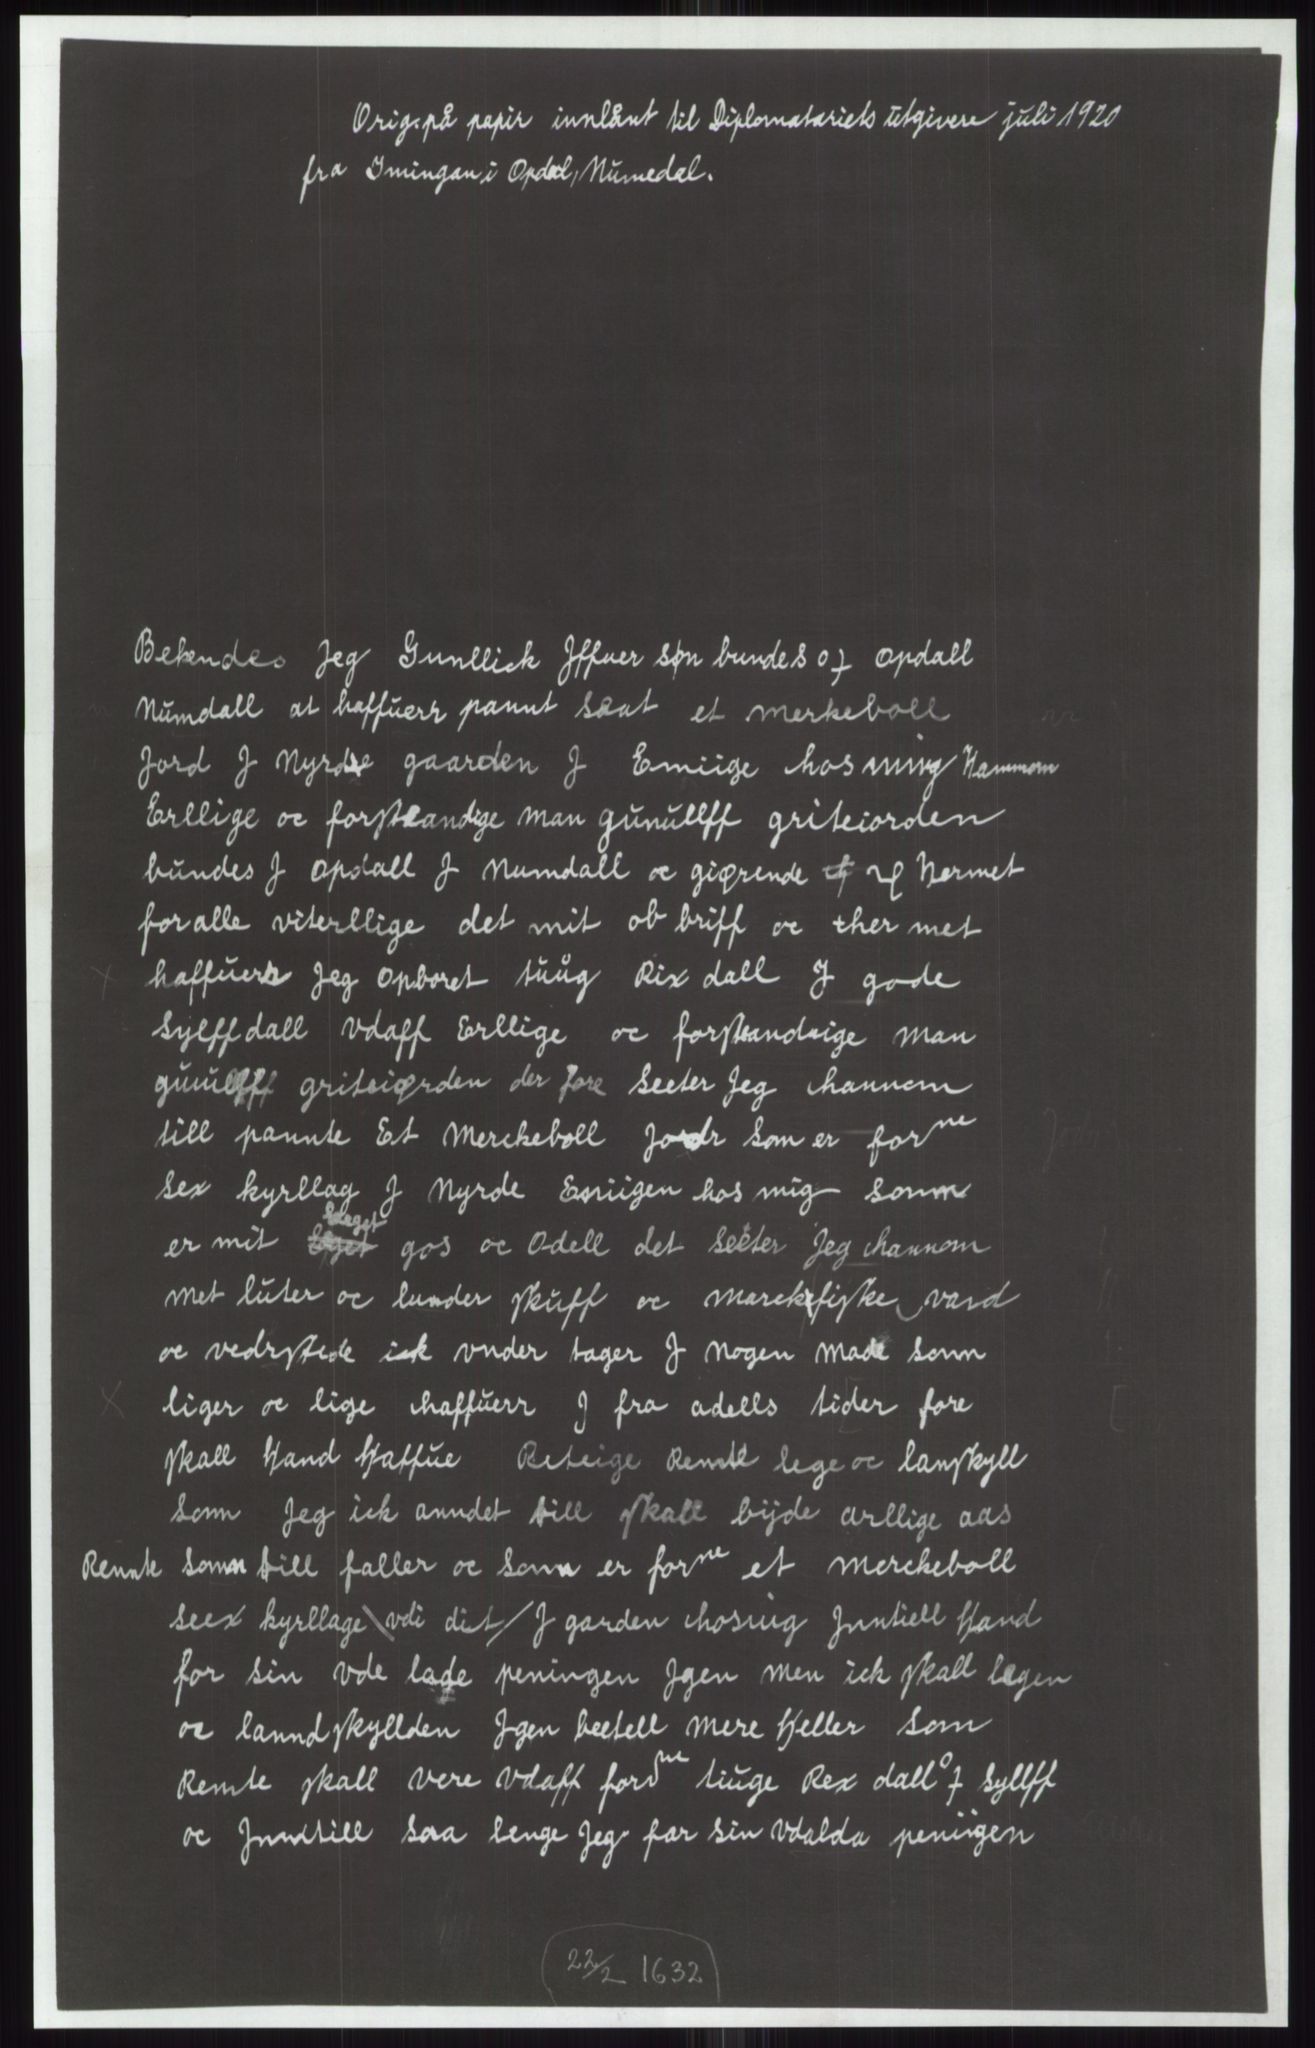 Orig. på papir innlånt til Diplomatariets utgivere juli 1920
fra Imingan i Opdal, Numedal.
Bekendes Jeg Gunllick Jffuer søn bundes of opdall
Numdall at haffuerr pannt saat et merkeboll
Jord J Nyrdre gaarden J Emiige hos ming Hammom
Erllige oc forstandige man gunullff griteiorden
bundes J opdall J Numdall oc giørende Hermet
for alle viterllige det mit ob briff oc ther met
haffuerr Jeg opboret tuug Rix dall J gode
Sylff dall vdaff Erllige oc forstandige man
gunullff griteiørden der fore seeter Jeg hannom
till pannte Et Merckeboll Jordr som er for ne
sex kyrllag J Nyrde Emiigen hos mig somm
er mit Eeget gos oc Odell det seeter Jeg hannom
met luter oc lunder skuff oc marck fiske vand
oc vedrstede ick vnder tager J nogen made somm
liger oc lige haffuerr J fra adells tider fore
skall Hand Haffue Reteige Remte lege oc lanskyll
somm Jeg ick anndet till skall bijde arllige aas
Rennte somm till faller oc somm er for ne et merckeboll
seex kyrllage vdi dit J garden hosmig Jnntiell Hand
for sin vde lagde peningen Jgen men ick skall legen
oc lannd skyllden Jgen beetell mere Heller som
Remte skall vere vdaff ford ne tiuge Rex dall of Syllff
oc Jnndtill saa lenge Jeg far sin vdalda peniigen
22/2 1632